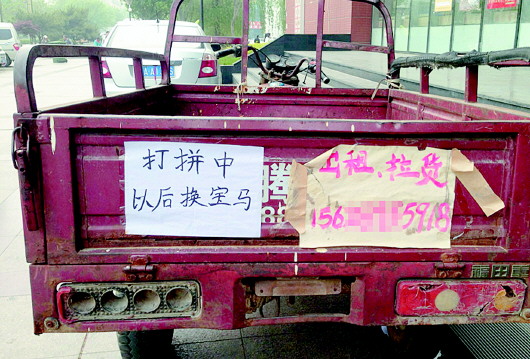 打拼中
以后换宝马
出租、拉货
156 5918
福田